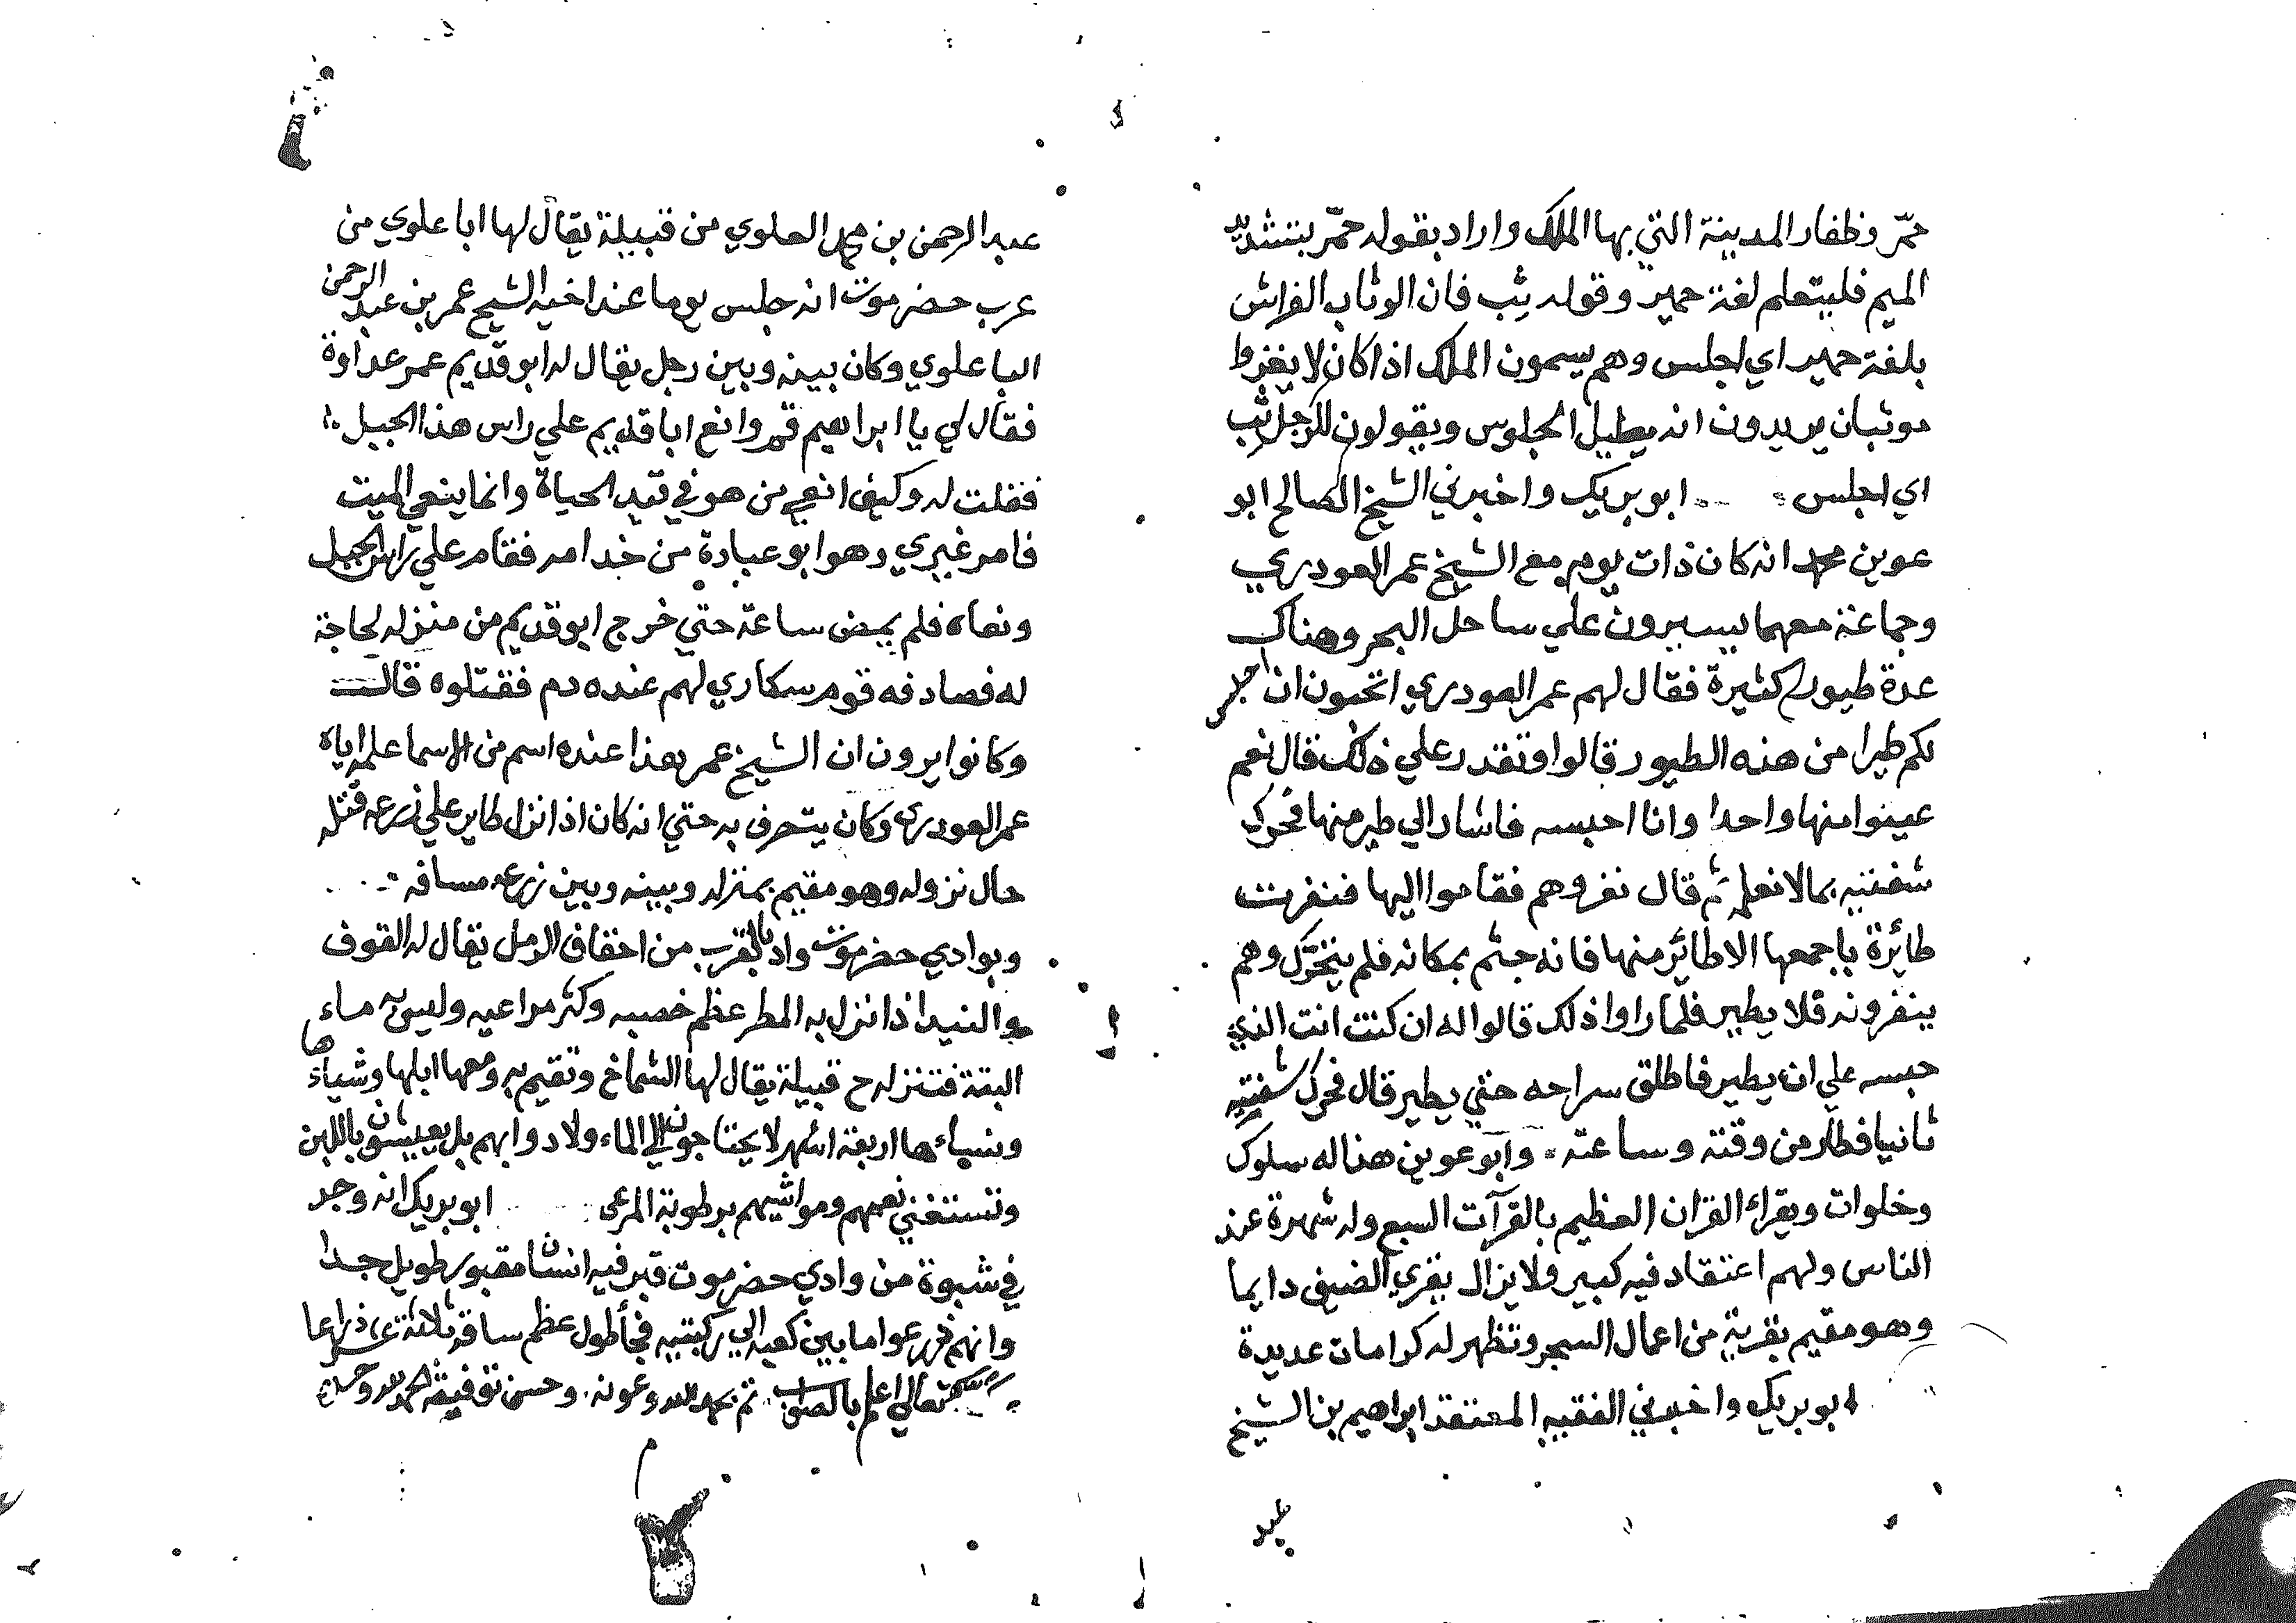 حمّر وظفار المدينة التي بها الملك واراد بقوله حمّر بتشديد
الميم فليتعلم لغة حمير وقوله ثِب فان الوثاب الفراش
بلغة حمير اي اجلس وهم يسمون الملك اذا كان لا يغزوا
موثبان يريدون انه يطيل الجلوس ويقولون للرجل ثب
اي اجلس ابو بريك واخبرني الشيخ الصالح ابو
عوين محمد انه كان ذات يوم مع الشيخ عمر العودري
وجماعة معهما يسيرون علي ساحل البحر وهناك
عدة طيور كثيرة فقال لهم عمر العودري اتحبون ان احبس
لكم طيرا من هذه الطيور قالوا وتقدر علي ذلك قال نعم
عينوا منها واحدا وانا احبسه فاشار الي طير منها فحرك
شفتيه بما لا نعلم ثم قال نفروهم فقاموا اليها فنفرت
طائرة باجمعها الا طائر منها فانه جثم بمكانه فلم يتحرك وهم
ينفرونه فلا يطير فلما راوا ذلك قالوا له ان كنت انت الذي
حبسه علي ان يطير فاطلق سراحه حتي يطير قال فحرك شفتيه
ثانيا فطار من وقته وساعته وابو عوين هذا له سلوك
وخلوات ويقراء القران العظيم بالقرآت السبع وله شهرة عند
الناس ولهم اعتقاد فيه كبير ولا يزال يقري الضيف دايما
وهو مقيم بقرية من اعمال السحر وتظهر له كرامات عديدة
ابو بريك واخبرني الفقيه المعتقد ابراهيم بن الشيخ
عبد
عبد الرحمن بن محمد العلوي من قبيلة يقال لها ابا علوي من
عرب حضرموت انه جلس يوما عند اخيه الشيخ عمر بن عبد الرحمن
البا علوي وكان بينه وبين رجل يقال له ابو قديم عمر عداوة
فقال لي يا ابراهيم قم وانع ابا قديم علي راس هذا الجبل
فقلت له وكيف انعي من هو في قيد الحياة وانما ينعي الميت
فامر غيري وهو ابو عبادة من خدامه فقام علي راس الجبل
ونعاه فلم يمض ساعة حتي خرج ابو قديم من منزله لحاجة
له فصادفه قوم سكاري لهم عنده دم فقتلوه قال
وكانوا يرون ان الشيخ عمر هذا عنده اسم من الاسما علمه اياه
عمر العودري وكان يتصرف به حتي انه كان اذا نزل طاير علي زرعه قتله
حال نزوله وهو مقيم بمنزله وبينه وبين زرعه مسافه
وبوادي حضرموت واد بالقرب من احقاف الرمل يقال له القوف
والنيد اذا نزل به المطر عظم خصبه وكثر مراعيه وليس به ماء
البتة فتنزله ح قبيلة يقال لها الشماخ وتقيم به ومعها ابلها وشياءها
ونساءها اربعة اشهر لا يحتاجون الي الماء ولا دوابهم بل يعيشون باللبن
وتستغني نعمهم ومواشيهم برطوبة المرعى ابو بريك انه وجد
في شبوة من وادي حضرموت قبر فيه انسان مقبور طويل جدا
وانهم ذرعوا ما بين كعبه الي ركبتيه فجأ طول عظم ساقه ثلاثة عشر ذراعا
تعالي اعلم بالصواب تم بحمد الله وعونه وحسن توفيقه الحمد لله وحده